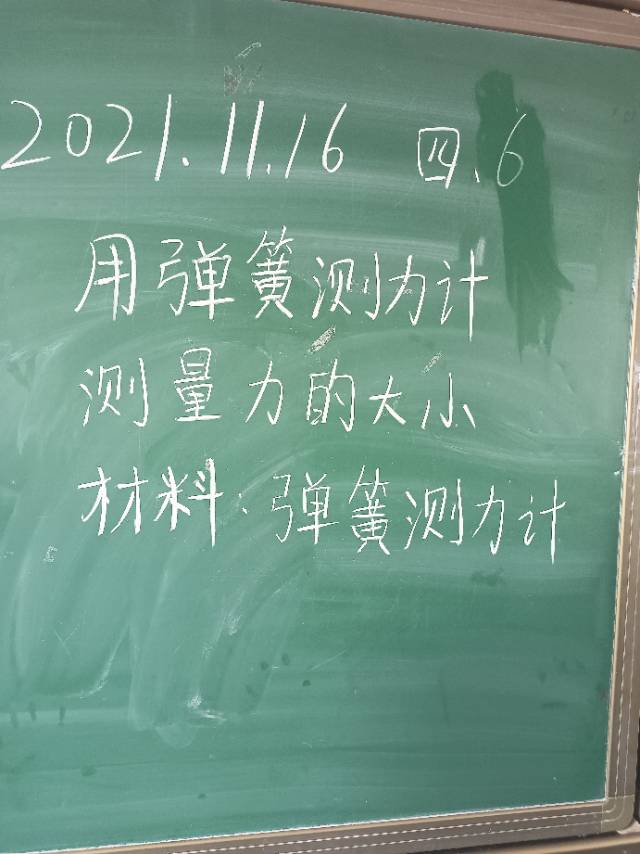 2021.11.16 四.6
用弹簧测力计
测量力的大小
材料:弹簧测力计